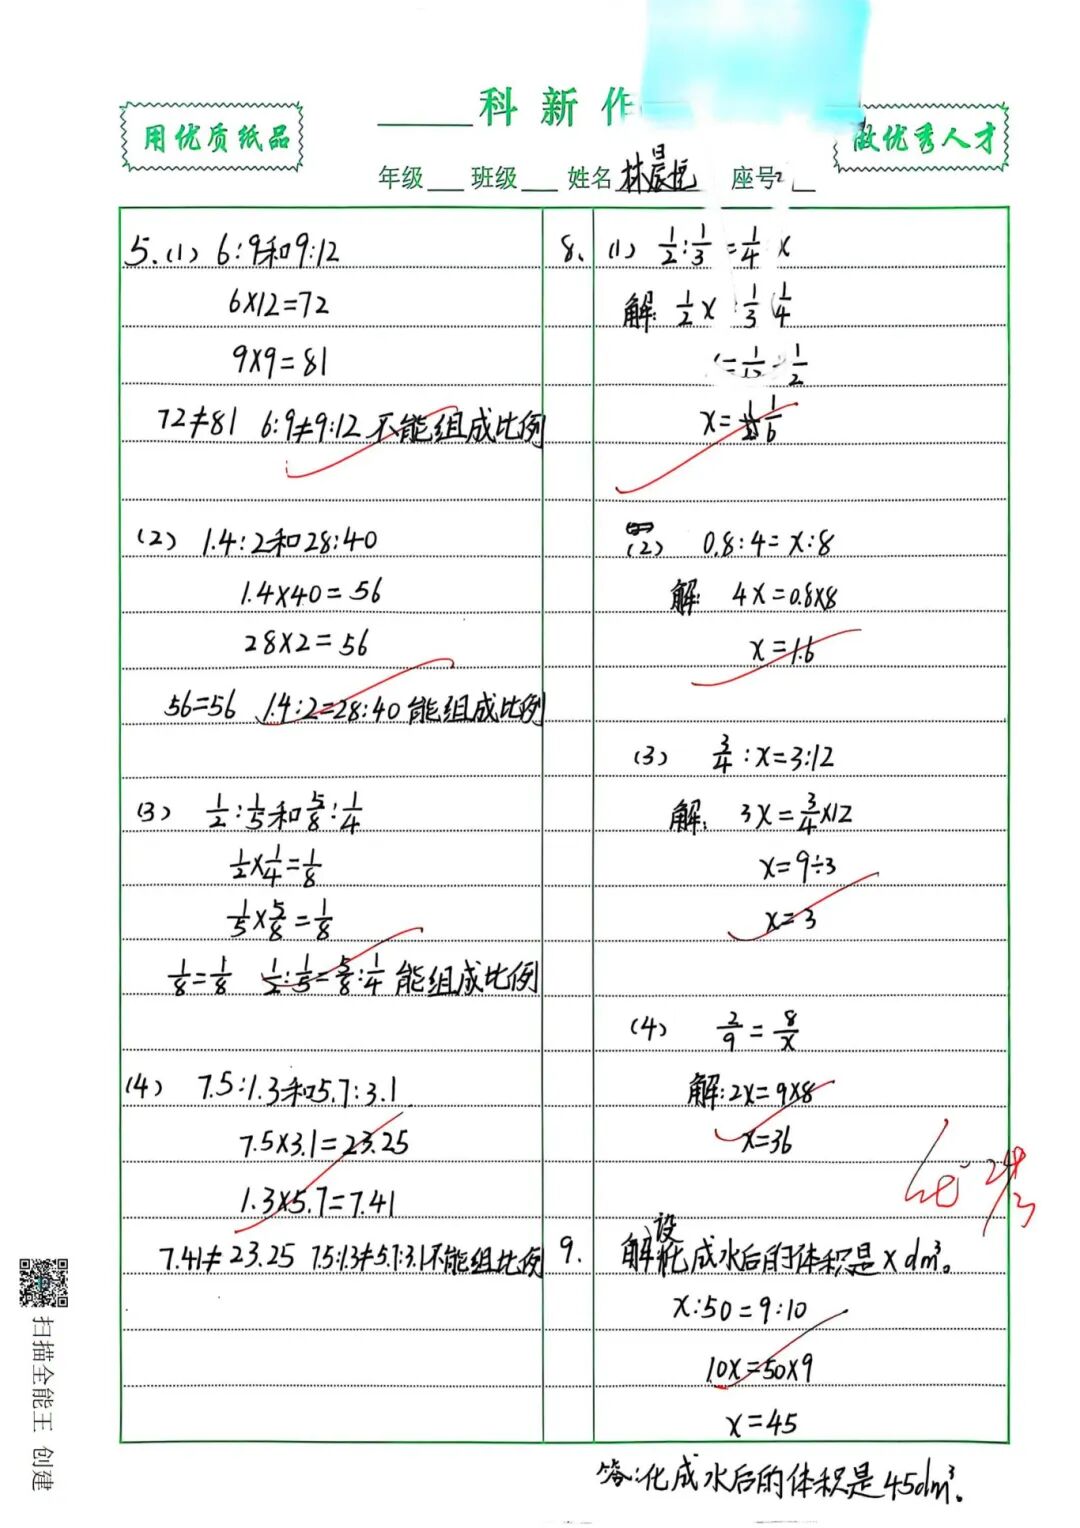 科新作
用优质纸品
做优秀人才
年级 班级 姓名 林晨 座号2
5.(1) 6:9和9:12
6×12=72
9×9=81
72≠81 6:9≠9:12 不能组成比例
(2) 1.4:2和28:40
1.4×40=56
28×2=56
56=56 1.4:2=28:40 能组成比例
(3) 1/2:1/5和5/8:1/4
1/2×1/4=1/8
1/5×5/8=1/8
1/8=1/8 1/2:1/5=5/8:1/4 能组成比例
(4) 7.5:1.3和5.7:3.1
7.5×3.1=23.25
1.3×5.7=7.41
7.41≠23.25 7.5:1.3≠5.7:3.1不能组比例
8、(1) 1/2:1/3=1/4 x
解: 1/2x 1/3 1/4
=1/12÷1/2
x=1/6
(2) 0.8:4=x:8
解: 4x=0.8×8
x=1.6
(3) 3/4:x=3:12
解: 3x=3/4×12
x=9÷3
x=3
(4) 2/9=8/x
解:2x=9×8
x=36
优
9. 解设化成水后的体积是xdm³。
x:50=9:10
10x=50×9
x=45
答:化成水后的体积是45dm³。
扫描全能王 创建